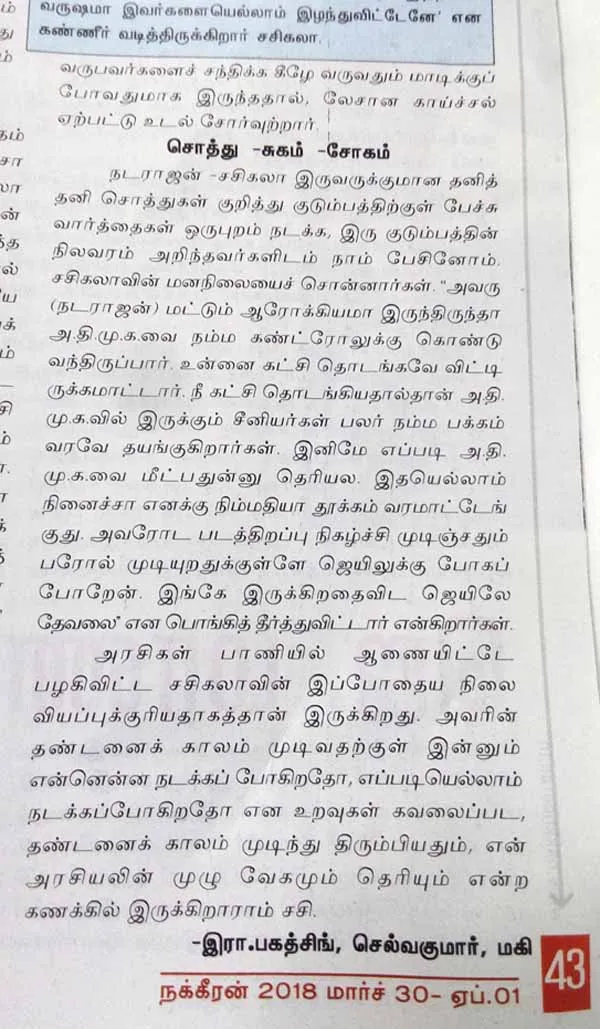 வருஷமா இவர்களையெல்லாம் இழந்துவிட்டேனே' என
கண்ணீர் வடித்திருக்கிறார் சசிகலா.
வருபவர்களைச் சந்திக்க கீழே வருவதும் மாடிக்குப்
போவதுமாக இருந்ததால், லேசான காய்ச்சல்
ஏற்பட்டு உடல் சோர்வுற்றார்.
சொத்து -சுகம் -சோகம்
நடராஜன் -சசிகலா இருவருக்குமான தனித்
தனி சொத்துகள் குறித்து குடும்பத்திற்குள் பேச்சு
வார்த்தைகள் ஒருபுறம் நடக்க, இரு குடும்பத்தின்
நிலவரம் அறிந்தவர்களிடம் நாம் பேசினோம்.
சசிகலாவின் மனநிலையைச் சொன்னார்கள். "அவரு
(நடராஜன்) மட்டும் ஆரோக்கியமா இருந்திருந்தா
அ.தி.மு.க.வை நம்ம கண்ட்ரோலுக்கு கொண்டு
வந்திருப்பார். உன்னை கட்சி தொடங்கவே விட்டி
ருக்கமாட்டார். நீ கட்சி தொடங்கியதால்தான் அ.தி.
மு.க.வில் இருக்கும் சீனியர்கள் பலர் நம்ம பக்கம்
வரவே தயங்குகிறார்கள். இனிமே எப்படி அ.தி.
மு.க.வை மீட்பதுன்னு தெரியல. இதயெல்லாம்
நினைச்சா எனக்கு நிம்மதியா தூக்கம் வரமாட்டேங்
குது. அவரோட படத்திறப்பு நிகழ்ச்சி முடிஞ்சதும்
பரோல் முடியுறதுக்குள்ளே ஜெயிலுக்கு போகப்
போறேன். இங்கே இருக்கிறதைவிட ஜெயிலே
தேவலை" என பொங்கித் தீர்த்துவிட்டார் என்கிறார்கள்.
அரசிகள் பாணியில் ஆணையிட்டே
பழகிவிட்ட சசிகலாவின் இப்போதைய நிலை
வியப்புக்குரியதாகத்தான் இருக்கிறது. அவரின்
தண்டனைக் காலம் முடிவதற்குள் இன்னும்
என்னென்ன நடக்கப் போகிறதோ, எப்படியெல்லாம்
நடக்கப்போகிறதோ என உறவுகள் கவலைப்பட,
தண்டனைக் காலம் முடிந்து திரும்பியதும், என்
அரசியலின் முழு வேகமும் தெரியும் என்ற
கணக்கில் இருக்கிறாராம் சசி.
-இரா.பகத்சிங், செல்வகுமார், மகி
43
நக்கீரன் 2018 மார்ச் 30- ஏப்.01